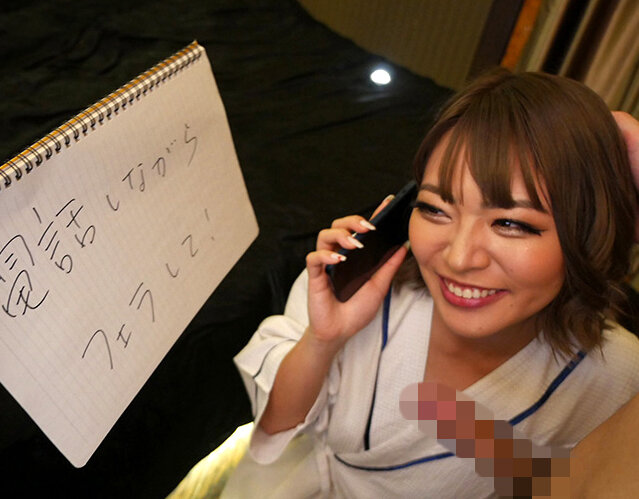 電話しながら
フェラして!